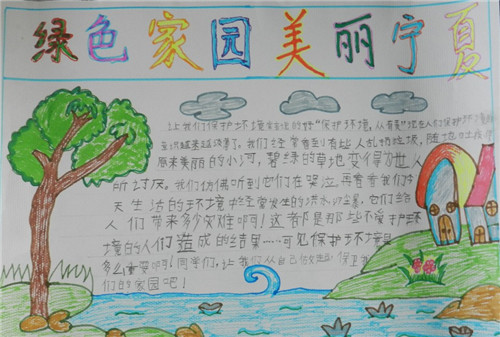 绿色家园美丽宁夏
让我们保护环境 保护环境，从 人们保护环境
越来越 了。我们经常看到有些人乱扔垃圾，随地吐痰
原来美丽的小河，碧绿的草地变得为世人
所讨厌。我们仿佛听到它们在哭泣再看看我们今
天生活的环境 经常发生的洪水 它们给
人们带来多少灾难啊！这都是那些不爱护环
境的人们造成的结果……可见保护环境是
多么重要啊！同学们，让我们从自己做起 保卫
们的家园吧！